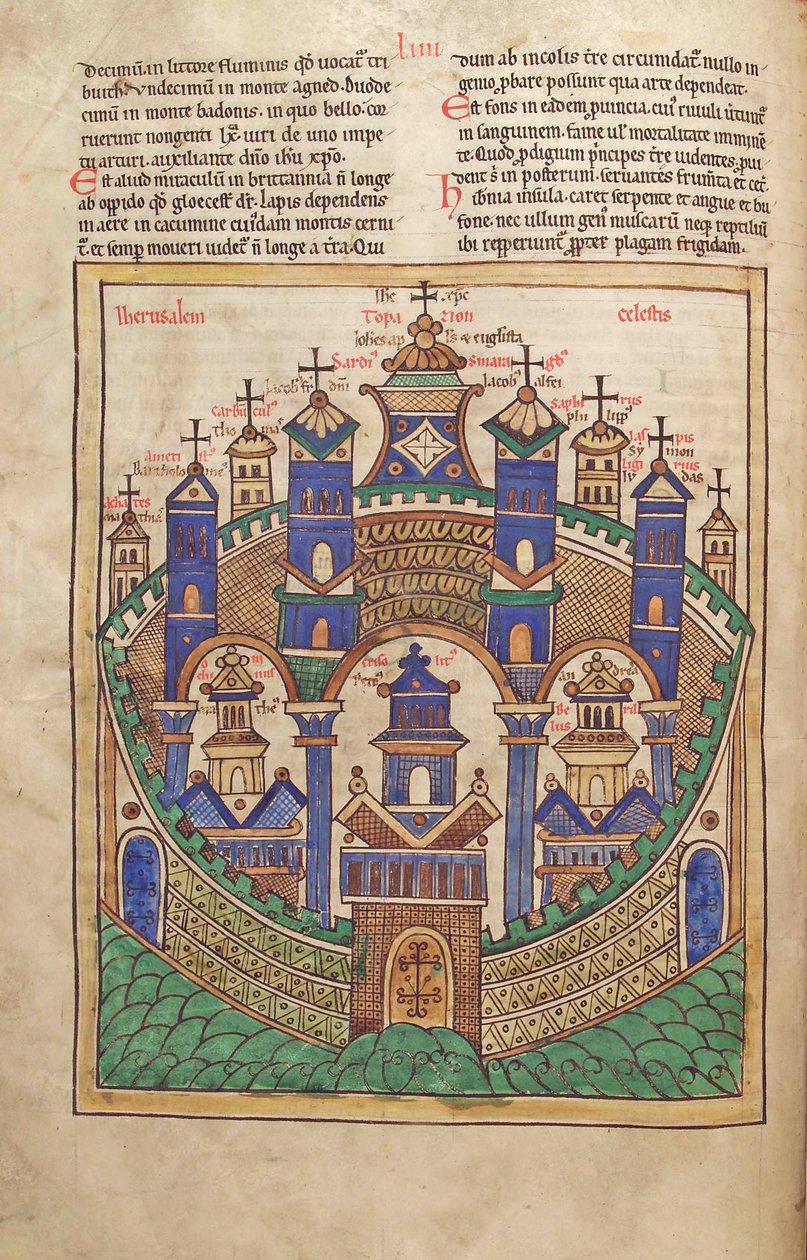 liiii
Decimū in littore fluminis qđ uocat᷑ tri
buith. Vndecimū in monte agned. Duode
cimū in monte badonis. in quo bello. cor
ruerunt nongenti lx᷑. uiri de uno impe
tu arturi. auxiliante dn̄o ih̄u xp̄o.
Est aliud miraculū in brittannia n̄ longe
ab oppido qđ gloecest̄ dr̄. lapis dependens
in aere in cacumine cuiꝰdam montis cerni
t᷑. et semꝑ moueri uidet᷑ n̄ longe a t̄ra. Qui
dum ab incolis t̄re circumdat᷑. nullo in
genio ꝓbare possunt qua arte dependeat.
Est fons in eadem ꝓuincia. cuiꝰ riuuli u̾tunt᷑
in sanguinem. fame ul̓ mortalitate iminē
te. Quod ꝓdigium pͥncipes t̄re uidentes. ꝓui
dent s̄ in posterum. seruantes frum̄ta et cet̄.
Hib̾nia insula. caret serpente et angue et bu
fone. nec ullum genꝰ muscarū neqꝫ reptiliū
ibi repperiunt᷑ ꝓpter plagam frigidam.
ihc xp̄c
Iherusalem Topa zion celestis
Ioh̄es ap̄l̄s & euḡlista
Sardiꝰ Smaragdꝰ
Iacobꝰ fr̄ dn̄i Iacobꝰ alfei
carbūculꝰ saphirus
thomaꝰ philippꝰ
Ametistꝰ Iaspis
Bartholomeꝰ Symon
ligurius
achates Iudas
mathiaꝰ
onichinus crisolitꝰ andreaꝰ
matheꝰ Petrꝰ Berillus